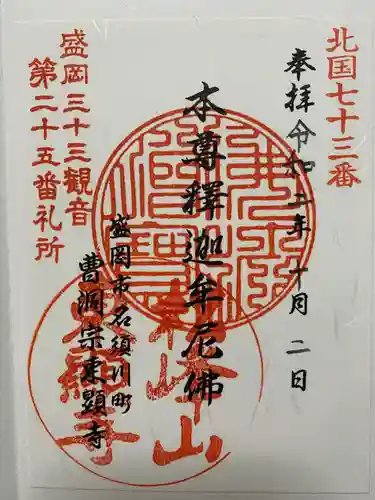 北国七十三番
奉拝 令和二年十月二日
本尊釋迦牟尼佛
盛岡市名須川町
曹洞宗東顕寺
盛岡三十三観音
第二十五番礼所